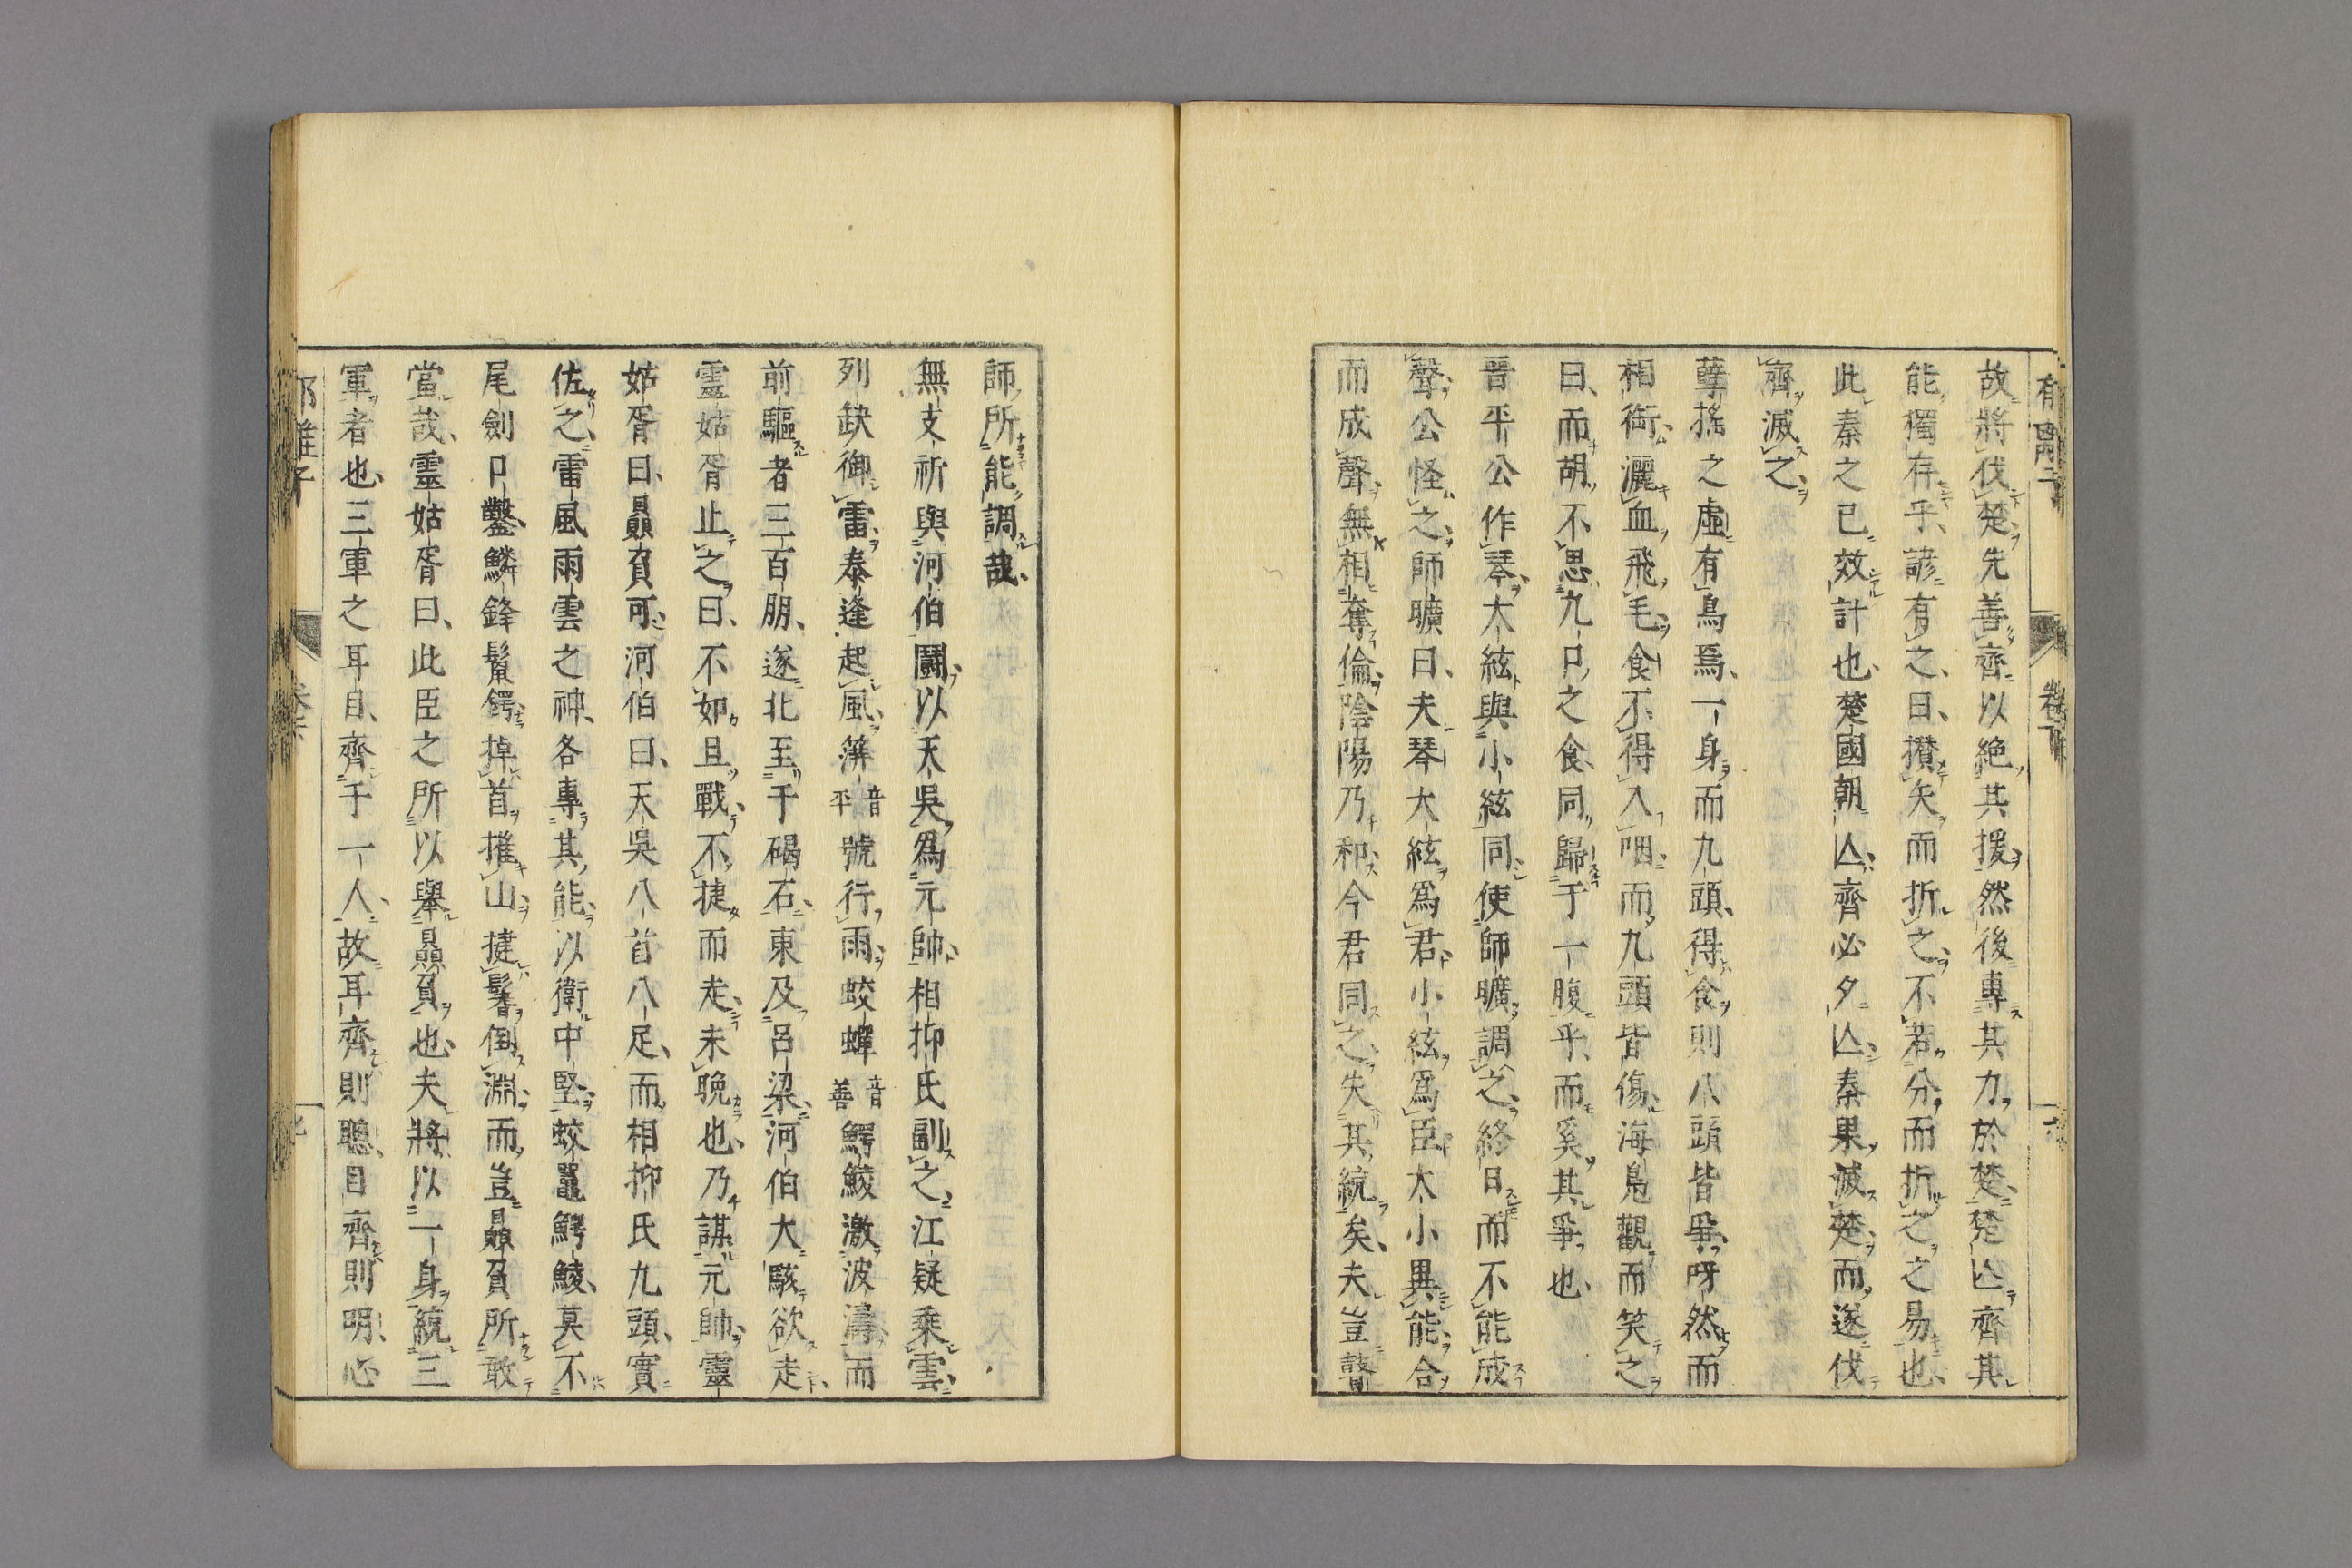 故將伐楚先善齊以絶其援然後專其力於楚楚亾齊其
能獨存乎諺有之曰攢矢而折之不若分而折之之易也
此秦之已效計也楚國朝亾齊必夕亾秦果滅楚而遂伐
齊滅之
孽搖之虛有鳥焉一身而九頭得食則八頭皆爭呀然而
相銜灑血飛毛食不得入咽而九頭皆傷海鳧觀而笑之
曰而胡不思九口之食同歸于一腹乎而奚其爭也
晋平公作琴大絃與小絃同使師曠調之終日而不能成
聲公怪之師曠曰夫琴大絃爲君小絃爲臣大小異能合
而成聲無相奪倫陰陽乃和今君同之失其統矣夫豈瞽
師所能調哉
無支祈與河伯鬭以天吳爲元帥相抑氏副之江疑乘雲
列缺御雷泰逢起風薄號音平行雨蛟蟬音善鰐鯪激波濤而
前驅者三百朋遂北至于碣石東及呂梁河伯大駭欲走
靈姑胥止之曰不如且戰不捷而走未晚也乃謀元帥靈
姑胥曰贔屓可河伯曰天吳八首八足而相抑氏九頭實
佐之雷風雨雲之神各專其能以衛中堅蛟鼉鰐鯪莫不
尾劍口鑿鱗鋒鬛鍔掉首摧山揵鬐倒淵而豈贔屓所敢
當哉靈姑胥曰此臣之所以舉贔屓也夫將以一身統三
軍者也三軍之耳目齊于一人故耳齊則聰目齊則明心